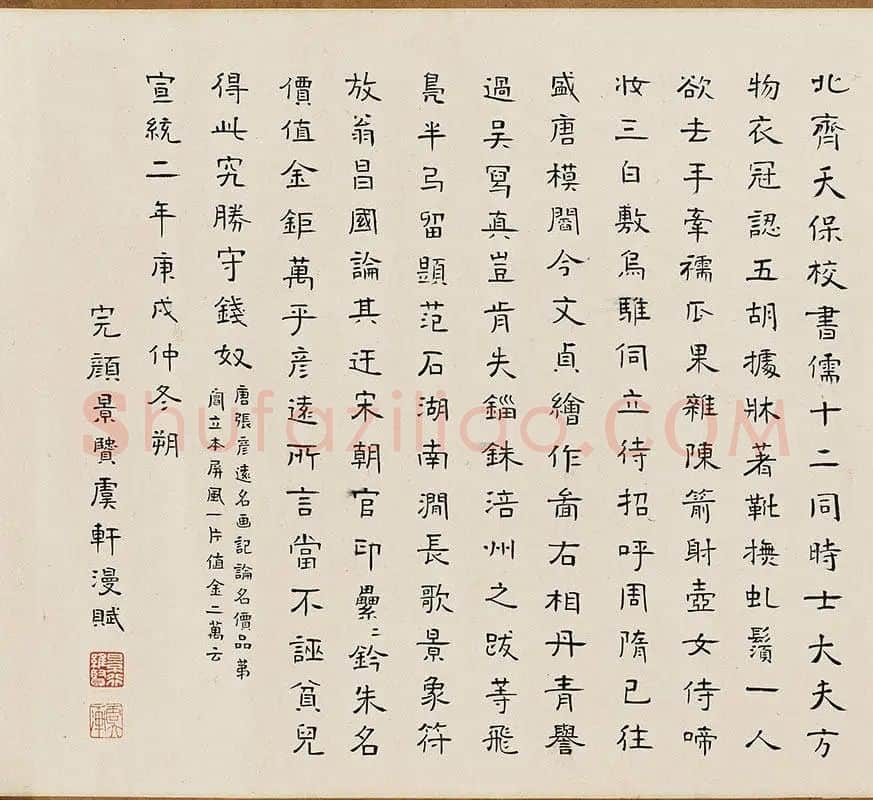 北齊天保校書儒十二同時士大夫方
物衣冠認五胡據牀著靴撫虬鬚一人
欲去手牽襦瓜果雜陳箭射壺女侍啼
妝三白敷烏騅伺立待招呼周隋已往
盛唐模閻令文貞繪作啚右相丹青譽
過吳寫真豈肯失錙銖涪州之跋等飛
鳧半弓留題范石湖南澗長歌景象符
放翁昌國論其迂宋朝官印纍〻鈐朱名
價值金鉅萬乎彥遠所言當不誣貧兒
得此究勝守錢奴
唐張彥遠名画記論名價品第
閻立本屏風一片值金二萬云
宣統二年庚戌仲冬朔
完顏景賢虞軒漫賦
Shufaziliao.COM